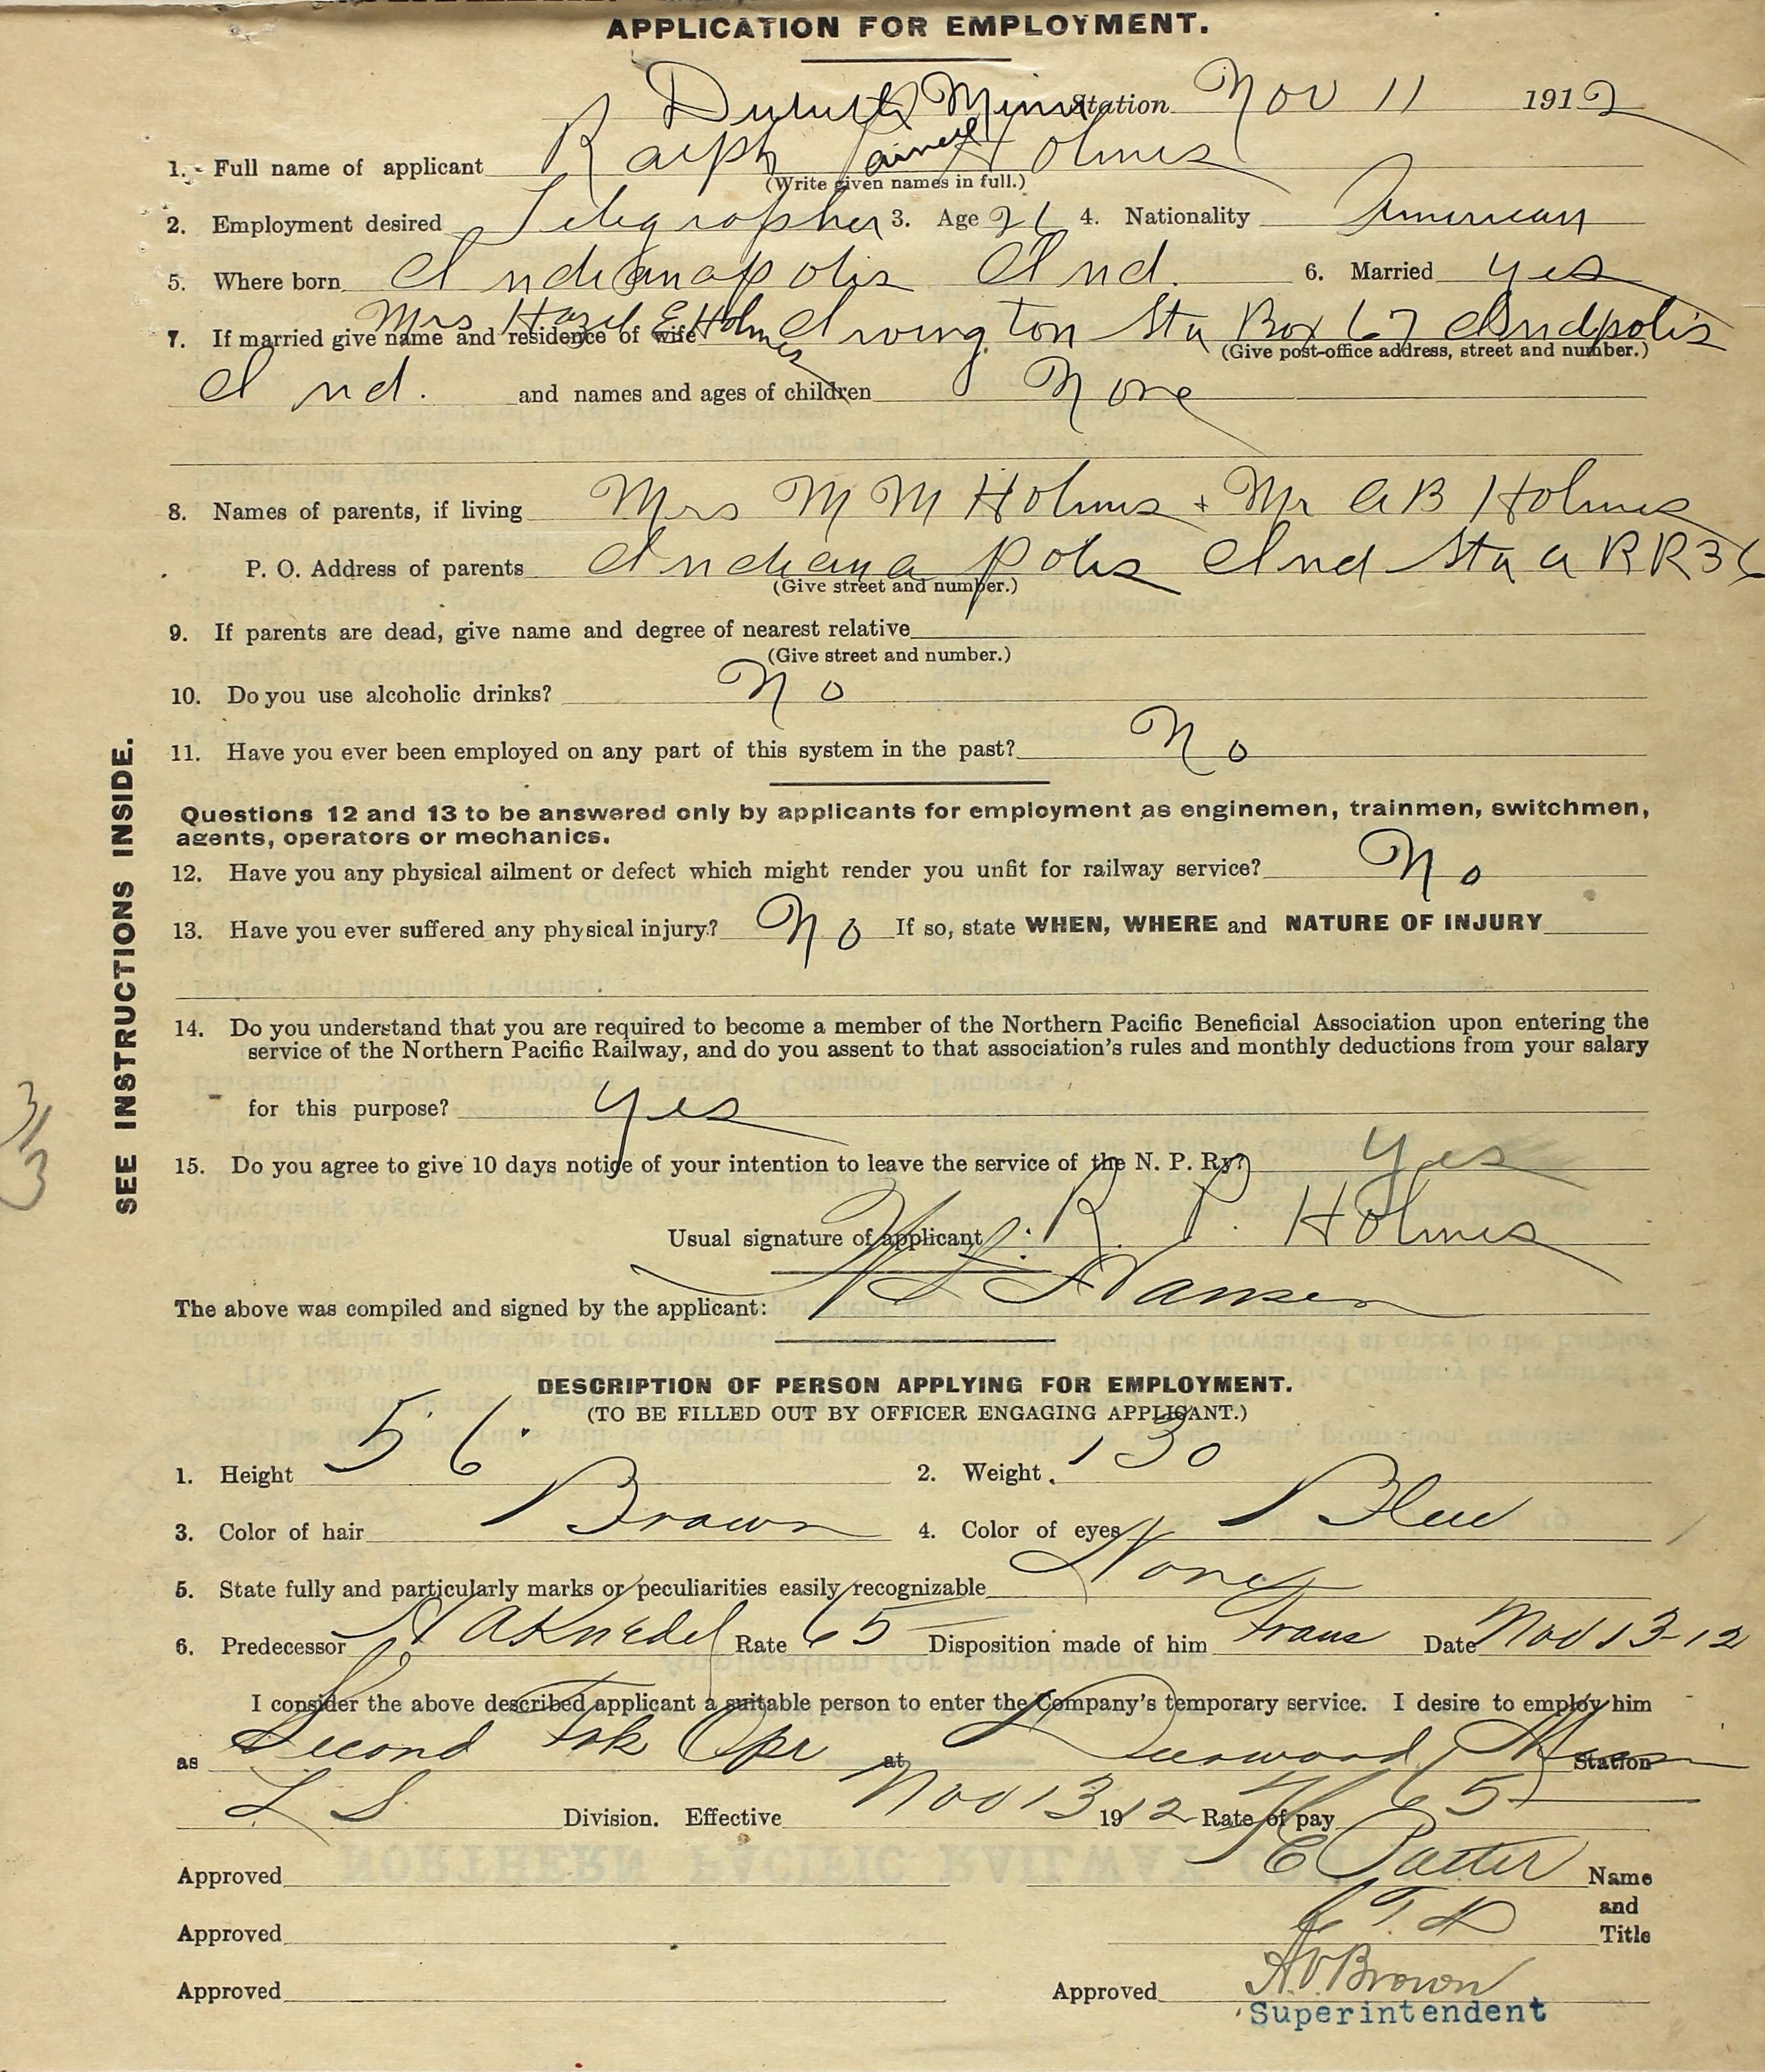 APPLICATION FOR EMPLOYMENT.
Duluth Minn Station Nov 11 1912
1. Full name of applicant Ralph Holmes
(Write given names in full.)
2. Employment desired Telegrapher 3. Age 21 4. Nationality American
5. Where born Indianapolis Ind. 6. Married yes
7. If married give name and residence of wife Mrs Hazel E Holmes Irvington Sta Box 67 Indpolis
(Give post-office address, street and number.)
Ind. and names and ages of children None
8. Names of parents, if living Mrs M M Holmes + Mr A B Holmes
P. O. Address of parents Indianapolis Ind Sta A RR36
(Give street and number.)
9. If parents are dead, give name and degree of nearest relative
(Give street and number.)
10. Do you use alcoholic drinks? No
11. Have you ever been employed on any part of this system in the past? No
Questions 12 and 13 to be answered only by applicants for employment as enginemen, trainmen, switchmen,
agents, operators or mechanics.
12. Have you any physical ailment or defect which might render you unfit for railway service? No
13. Have you ever suffered any physical injury? No If so, state WHEN, WHERE and NATURE OF INJURY
14. Do you understand that you are required to become a member of the Northern Pacific Beneficial Association upon entering the
service of the Northern Pacific Railway, and do you assent to that association's rules and monthly deductions from your salary
for this purpose? yes
15. Do you agree to give 10 days notice of your intention to leave the service of the N. P. Ry? yes
Usual signature of applicant: R. P. Holmes
The above was compiled and signed by the applicant: Hansen
SEE INSTRUCTIONS INSIDE.
3/3
DESCRIPTION OF PERSON APPLYING FOR EMPLOYMENT.
(TO BE FILLED OUT BY OFFICER ENGAGING APPLICANT.)
1. Height 5' 6" 2. Weight 130
3. Color of hair Brown 4. Color of eyes Blue
5. State fully and particularly marks or peculiarities easily recognizable None
6. Predecessor Rate 65 Disposition made of him Trans Date Nov 13-12
I consider the above described applicant a suitable person to enter the Company's temporary service. I desire to employ him
as Second Trk Opr at Deerwood, Minn Station
L S Division. Effective Nov 13 1912 Rate of pay 65
Approved Name
and
Approved C T D Title
Approved Approved Brown
Superintendent